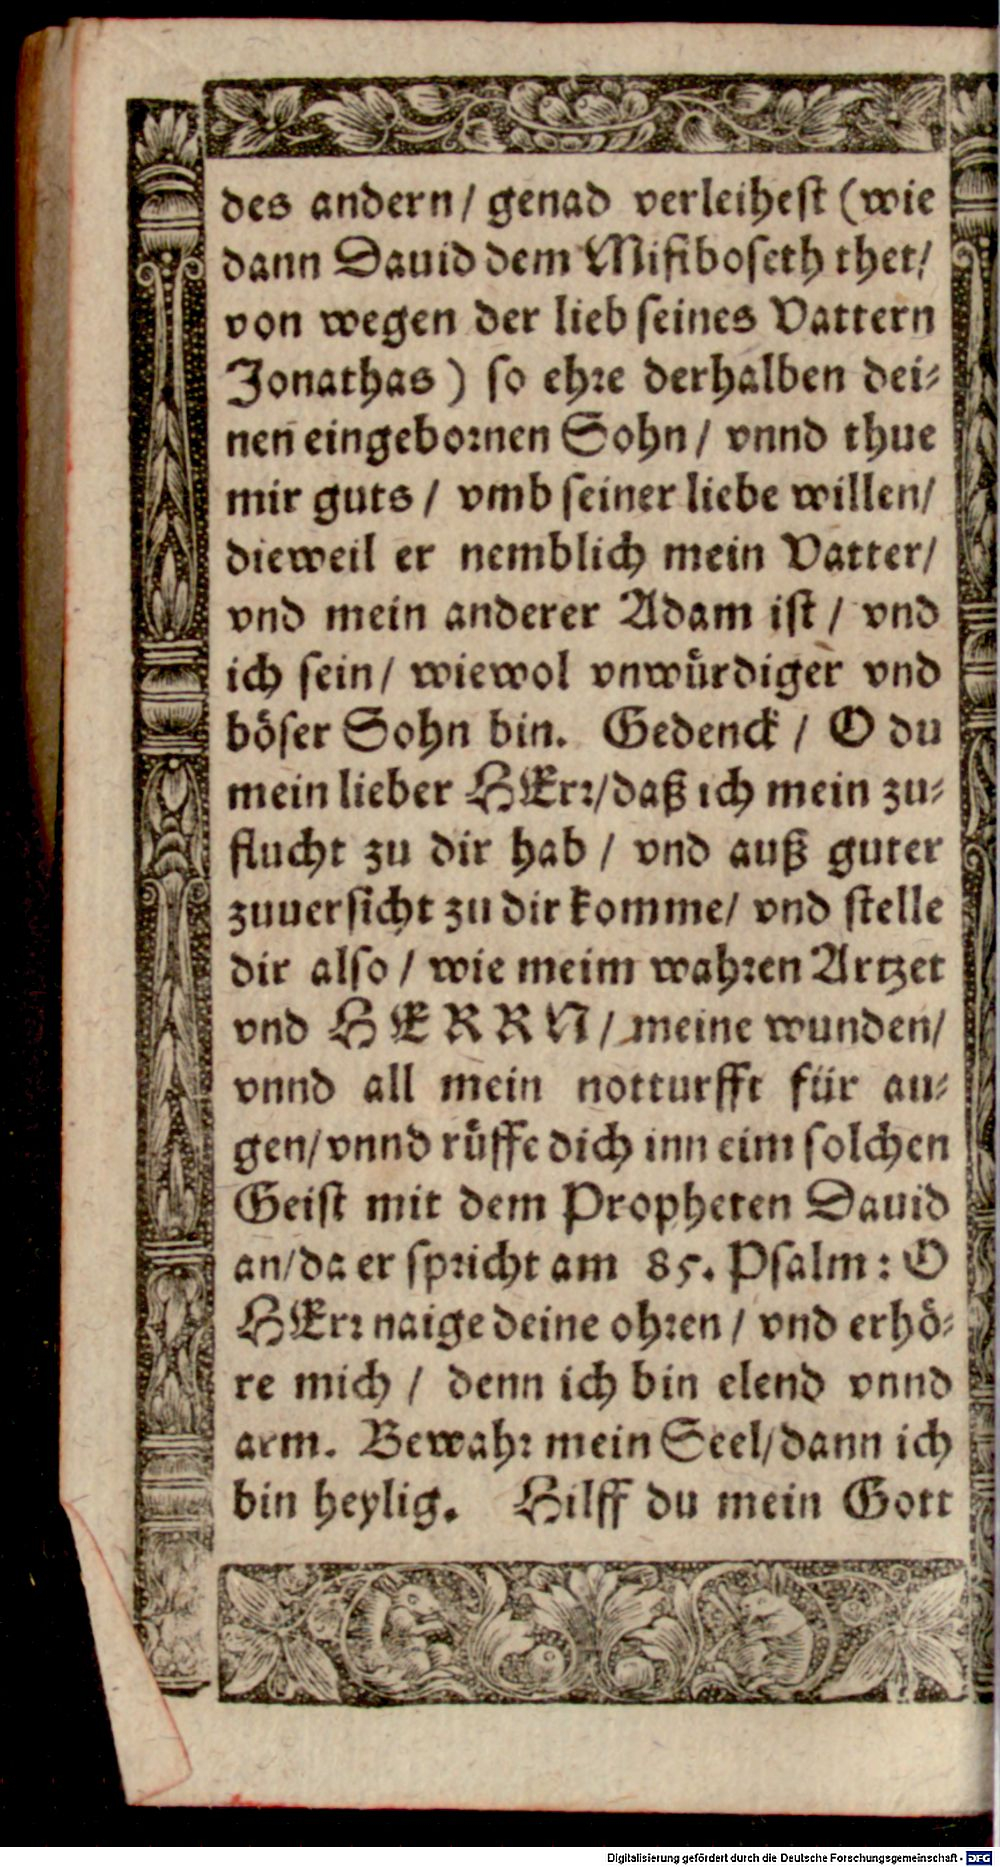 des andern/ genad verleihest (wie
dann Dauid dem Mifiboseth thet/
von wegen der lieb seines Vattern
Jonathas) so ehre derhalben dei⸗
nen eingebornen Sohn/ vnnd thue
mir guts/ vmb seiner liebe willen/
dieweil er nemblich mein Vatter/
vnd mein anderer Adam ist/ vnd
ich sein/ wiewol vnwürdiger vnd
böser Sohn bin. Gedenck/ O du
mein lieber HErr/daß ich mein zu⸗
flucht zu dir hab/ vnd auß guter
zuuersicht zu dir komme/ vnd stelle
dir also/ wie meim wahren Artzet
vnd HERRN/ meine wunden/
vnnd all mein notturfft für au⸗
gen/vnnd rüffe dich inn eim solchen
Geist mit dem Propheten Dauid
an/da er spricht am 85. Psalm: O
HErr naige deine ohren/ vnd erhö⸗
re mich/ denn ich bin elend vnnd
arm. Bewahr mein Seel/dann ich
bin heylig. Hilff du mein Gott
Digitalisierung gefördert durch die Deutsche Forschungsgemeinschaft - DFG